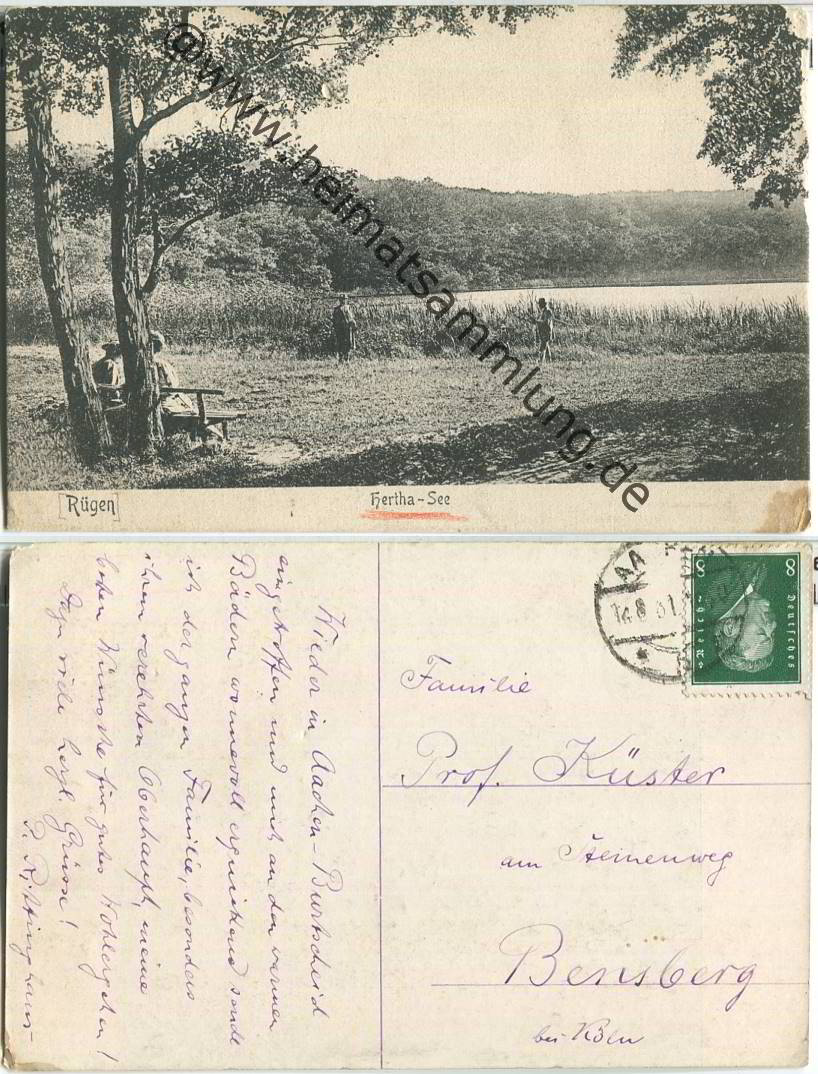 ©www.heimatsammlung.de
Rügen
Hertha-See
Wieder in Aachen-Burtscheid
eingetroffen und mich an den warmen
Bädern wonnevoll erquickend sende
ich der ganzen Familie, besonders
ihrem verehrten Oberhaupt, meine
besten Wünsche für gutes Wohlergehen!
Dazu viele herzl. Grüsse!
P. Rittinghaus-
AA
14.8.31
8
8
Deutsches
Reich
Familie
Prof. Küster
am Steinenweg
Bensberg
bei Köln